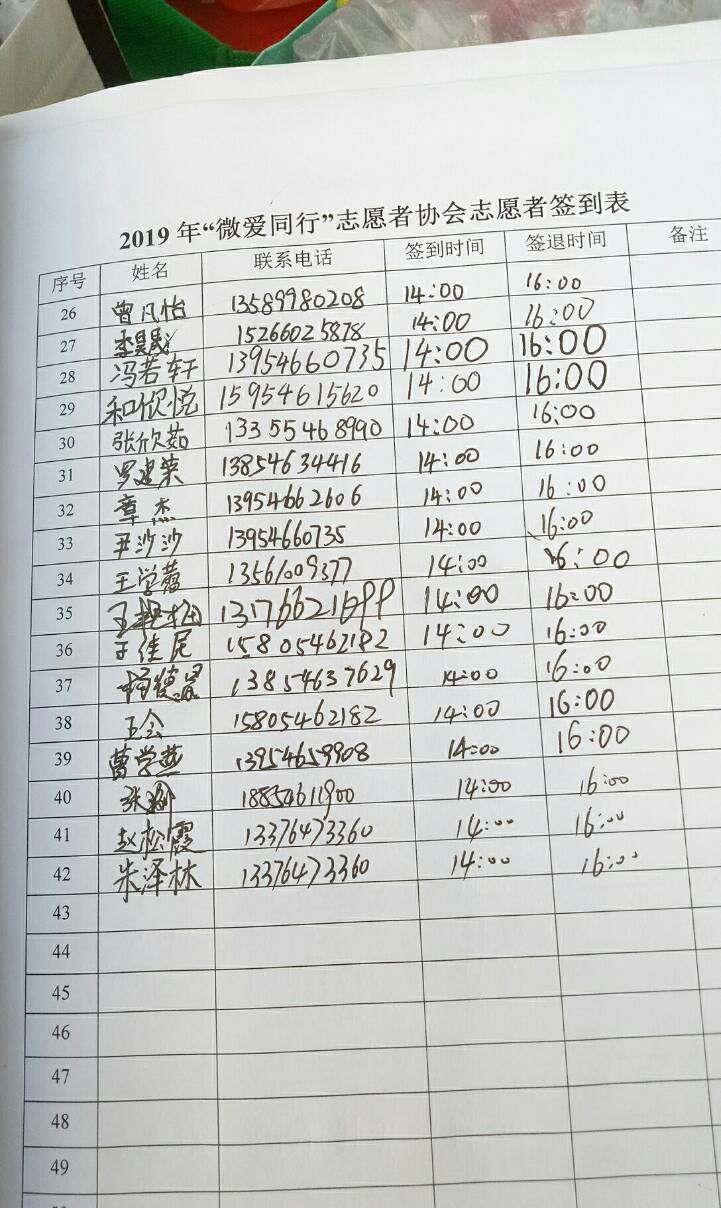 2019 年“微爱同行”志愿者协会志愿者签到表
序号 姓名 联系电话 签到时间 签退时间 备注
26 曾凡怡 13589980208 14:00 16:00
27 李昊晟 15266025878 14:00 16:00
28 冯若轩 13954660735 14:00 16:00
29 和欣悦 15954615620 14:00 16:00
30 张欣茹 13355468990 14:00 16:00
31 罗建荣 13854634416 14:00 16:00
32 章杰 13954662606 14:00 16:00
33 尹沙沙 13954660735 14:00 16:00
34 王学蕾 13561009377 14:00 16:00
35 14:00 16:00
36 于佳尼 15805462182 14:00 16:00
37 13854637629 14:00 16:00
38 王会 15805462182 14:00 16:00
39 曹学燕 13954659908 14:00 16:00
40 18854611900 14:00 16:00
41 赵松霞 13376473360 14:00 16:00
42 朱泽林 13376473360 14:00 16:00
43
44
45
46
47
48
49